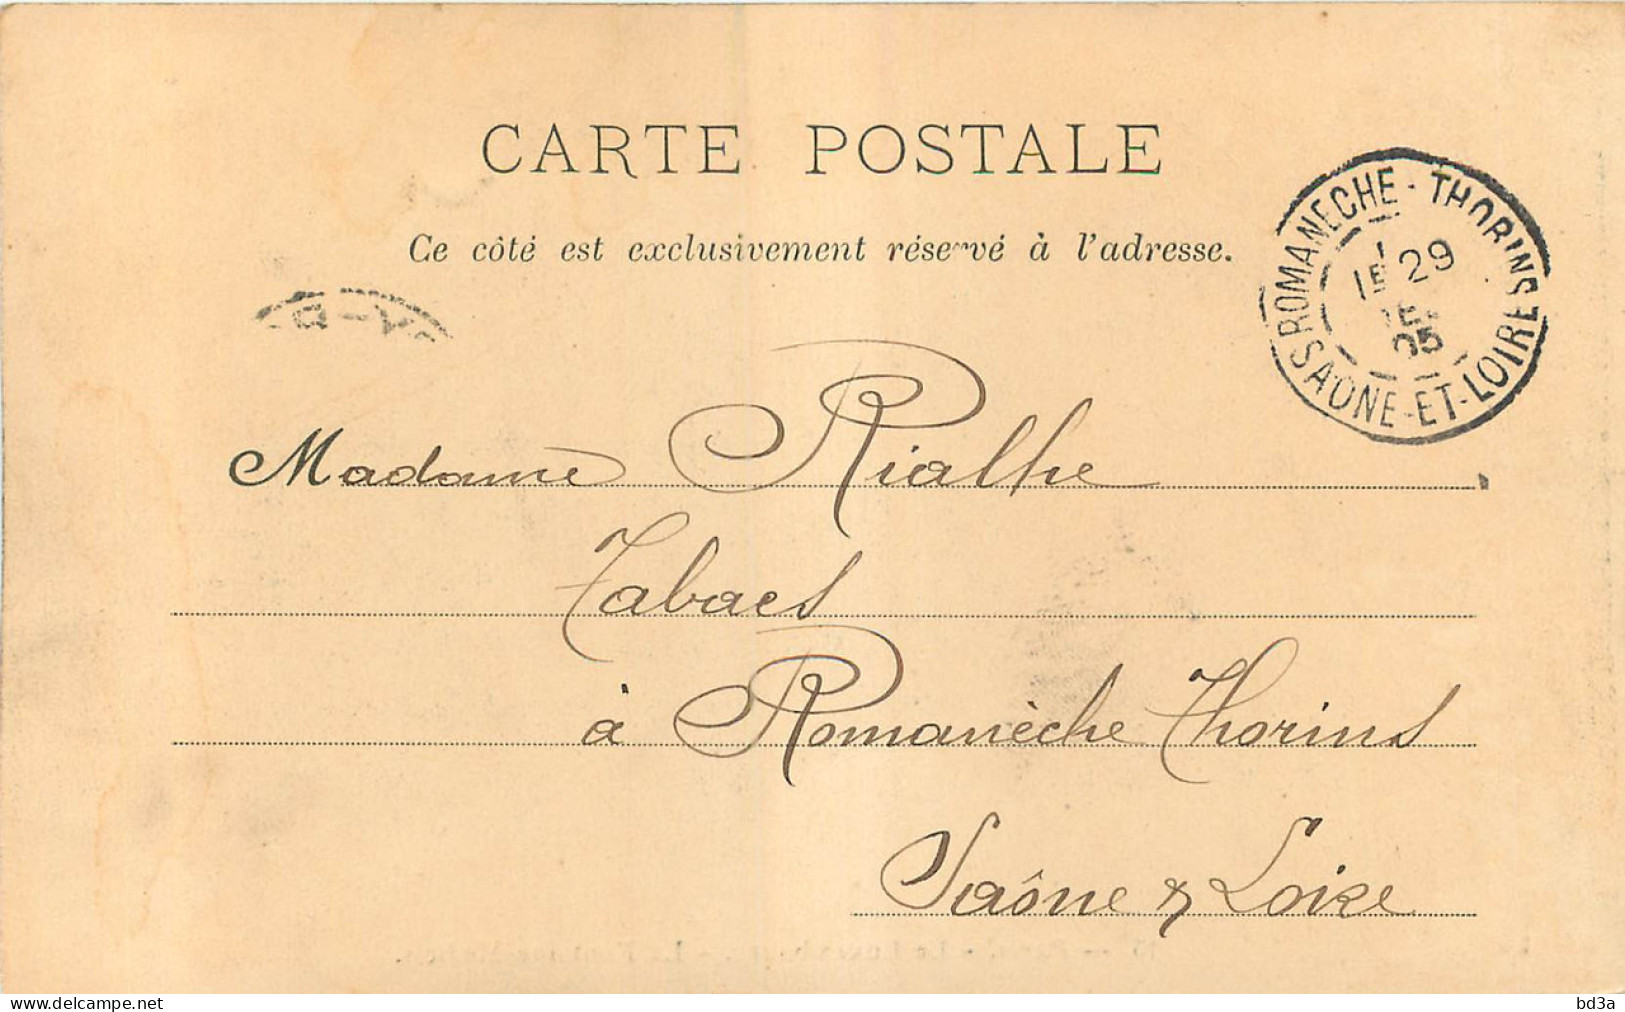 CARTE POSTALE
Ce côté est exclusivement réservé à l'adresse.
ROMANECHE - THORINS
29
05
SAONE-ET-LOIRE
Madame Rialhe
Tabacs
à Romanèche Thorins
Saône & Loire
www.delcampe.net
bd3a